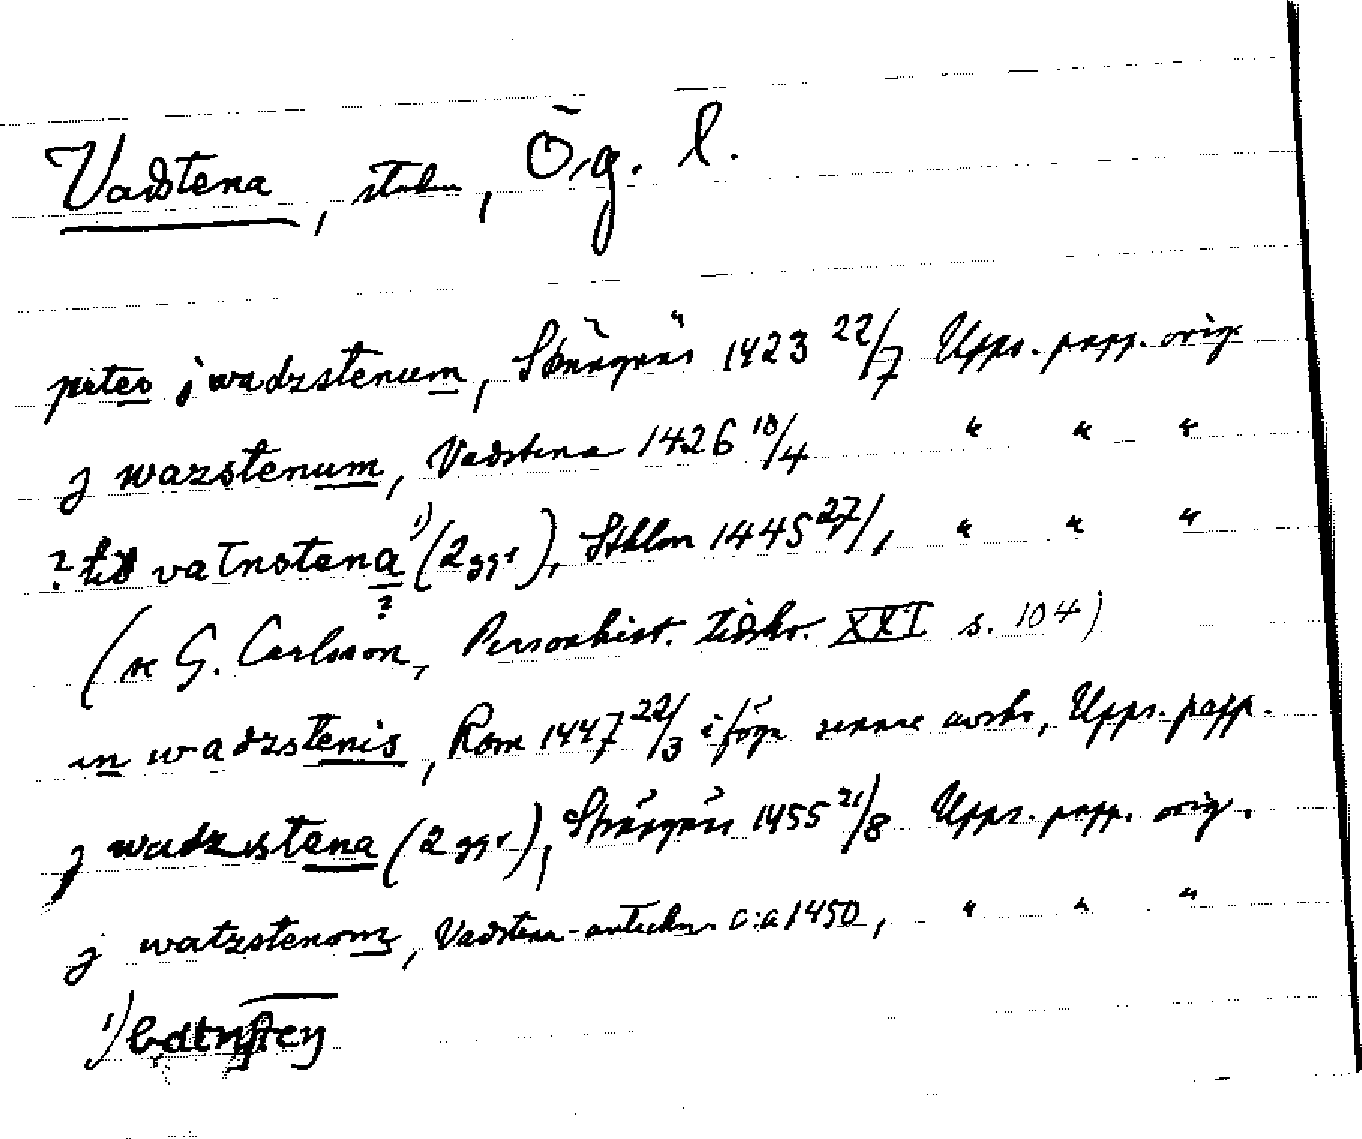 Vadstena, staden, Ög. l.
peter j wadzstenum, Strängnäs 1423 22/7 Upps. papp. orig.
j wazstenum, Vadstena 1426 10/4 " " "
? till vatnstena 1) (2 ggr), Sthlm 1445 27/1, " " "
?
(se G. Carlsson, Personhist. tidskr. XXI s. 104)
in wadzstenis, Rom 1447 22/3 i följe senare avskr, Upps. papp.
j wadzstena (2 ggr), Strängnäs 1455 21/8 Upps. papp. orig.
j watzstenom, Vadstena- c:a 1450, " " "
1)